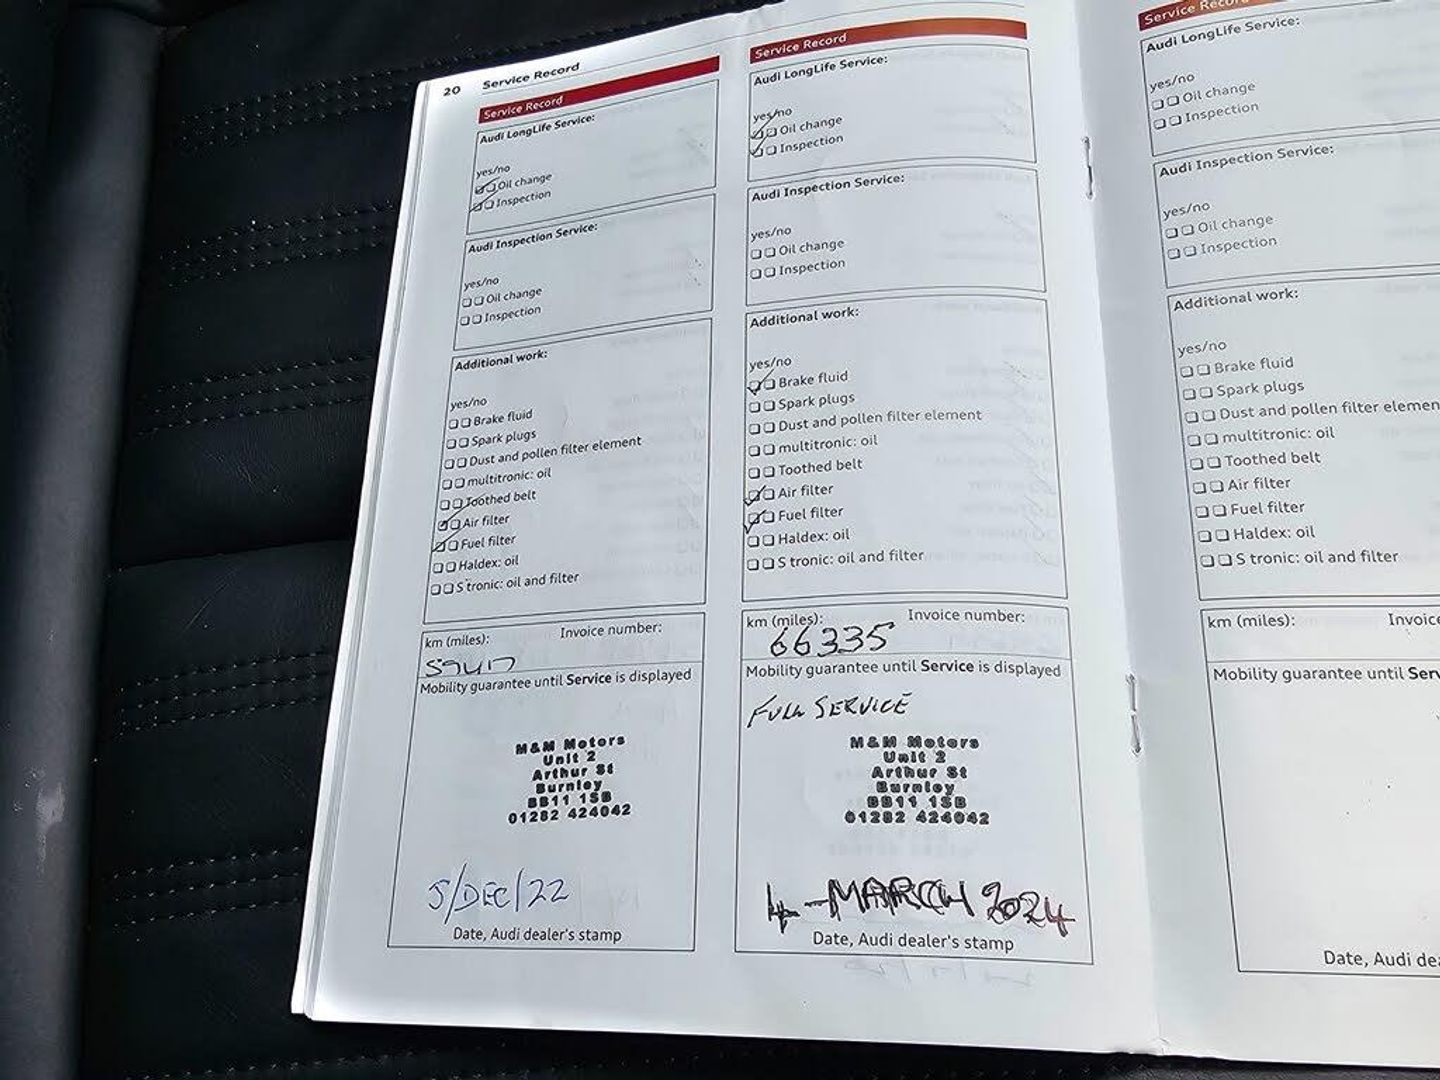 20 Service Record
Service Record
Audi LongLife Service:
yes/no
Oil change
Inspection
Audi Inspection Service:
yes/no
Oil change
Inspection
Additional work:
yes/no
Brake fluid
Spark plugs
Dust and pollen filter element
multitronic: oil
Toothed belt
Air filter
Fuel filter
Haldex: oil
S tronic: oil and filter
km (miles): Invoice number:
59417
Mobility guarantee until Service is displayed
M&M Motors
Unit 2
Arthur St
Burnley
BB11 1SB
01282 424042
5/DEC/22
Date, Audi dealer's stamp
Service Record
Audi LongLife Service:
yes/no
Oil change
Inspection
Audi Inspection Service:
yes/no
Oil change
Inspection
Additional work:
yes/no
Brake fluid
Spark plugs
Dust and pollen filter element
multitronic: oil
Toothed belt
Air filter
Fuel filter
Haldex: oil
S tronic: oil and filter
km (miles): Invoice number:
66335
Mobility guarantee until Service is displayed
FULL SERVICE
M&M Motors
Unit 2
Arthur St
Burnley
BB11 1SB
01282 424042
4-MARCH 2024
Date, Audi dealer's stamp
Service Record
Audi LongLife Service:
yes/no
Oil change
Inspection
Audi Inspection Service:
yes/no
Oil change
Inspection
Additional work:
yes/no
Brake fluid
Spark plugs
Dust and pollen filter elemen
multitronic: oil
Toothed belt
Air filter
Fuel filter
Haldex: oil
S tronic: oil and filter
km (miles): Invoice
Mobility guarantee until Serv
Date, Audi dea